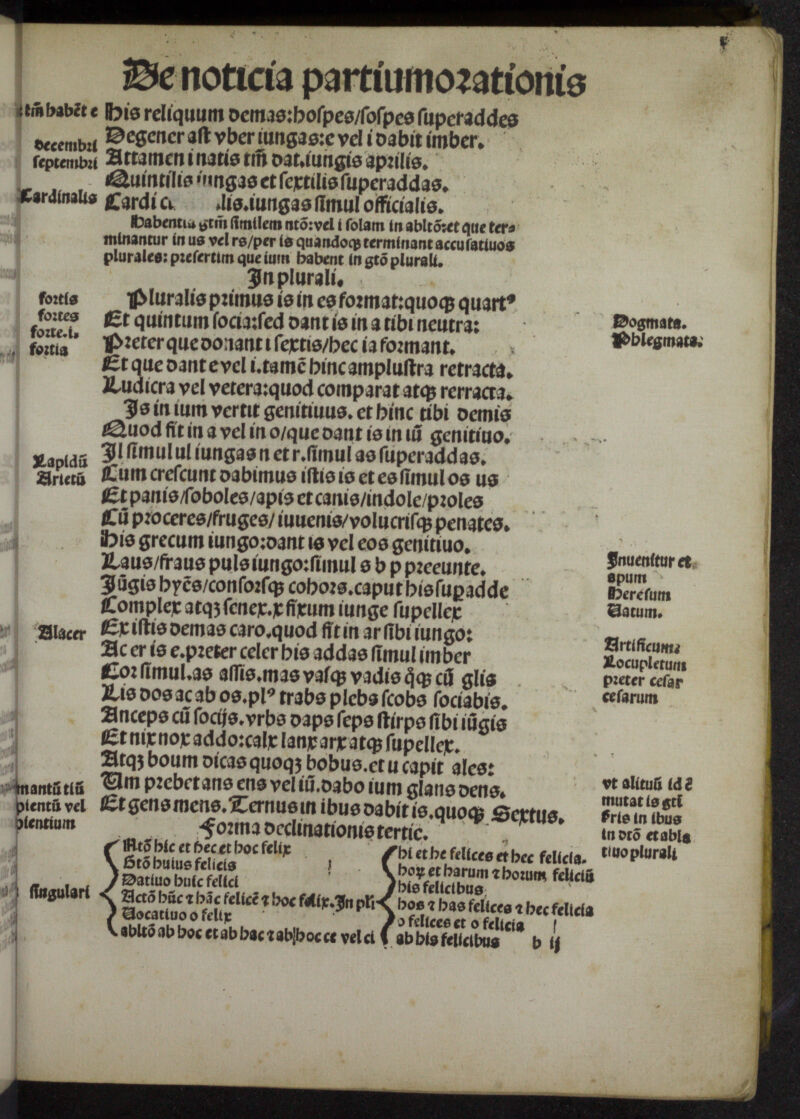 De noticia partiumorationis
tm̄ habēt e
decembri
septembri
Cardinalis
His reliquum demas:hospes/sospes superaddes
Degener ast vber iungas:e vel i dabit imber.
Attamen i natis tm̄ dat.iungis aprilis.
Quintilis iungas et sextilis superaddas.
Cardi lis.iungas simul officialis.
Habentia similem ntō:vel i solam in abltō:et que ter⸗
minantur in us vel rs/per is quandoqꝫ terminant accusatiuos
plurales: presertim que ium habent in gtō plurali.
In plurali.
fortis
fortes
forte.i.
fortia
Pluralis primus is in es format:quoqꝫ quartꝰ
Et quintum socia:sed dant is in a tibi neutra:
Preter que donant i sextis/hec ia formant.
Et que dant e vel i.tamē hinc amplustra retracta.
Ludicra vel vetera:quod comparat atqꝫ rerracta.
Is in ium vertit genitiuus. et hinc tibi demis
Quod fit in a vel in o/que dant is in iū genitiuo.
Dogmata.
Phlegmata.
Lapidū
Arietū
Il simul ul iungas n et r.simul as superaddas.
Cum crescunt dabimus istis is et es simul os us
Et panis/soboles/apis et canis/indole/proles
Cū proceres/fruges/ iuuenis/volucrisqꝫ penates.
His grecum iungo:dant is vel eos genitiuo.
Laus/fraus puls iungo:simul s b p preeunte.
Iūgis hyēs/consorsqꝫ cohors.caput his supadde
Complex atqꝫ senex.x fixum iunge supellex
Inuenitur et
apum
Heresum
Vatum.
Alacer
Ex istis demas caro.quod fit in ar sibi iungo:
Ac er is e.preter celer his addas simul imber
Cor simul.as assis.mas vasqꝫ vadis qꝫ cū glis
Lis dos ac ab os.plꝰ trabs plebs scobs sociabis.
Anceps cū socijs.vrbs daps seps stirps sibi iūgis
Et nix nox addo:calx lanx arx atqꝫ supellex.
Atqꝫ boum dicas quoqꝫ bobus.et u capit ales:
Artificum:
Locupletum
preter cesar
cesarum
mantū tiū
dientū vel
dientium
Um prebet ans ens vel iū.dabo ium glans dens.
Et gens mens.Ternus in ibus dabit is.quoqꝫ Sextus.
vt alituū id ē
mutat is gti
sris in ibus
in dtō et abla
tiuo plurali
Forma declinationis tertie.
singulari
Ntō hic et hec et hoc felix
Gtō huius felicis
Datiuo huic felici
Actō hūc ⁊ hāc felicē ⁊ hoc felix.In pli
Vocatiuo o felix
abltō ab hoc et ab hac ⁊ ab hoc ce vel ci
hi et he felices et hec felicia.
hoꝝ et harum ⁊ horum feliciū
his felicibus
hos ⁊ has felices ⁊ hec felicia
o felices et o felicia
ab his felicibus
b ij